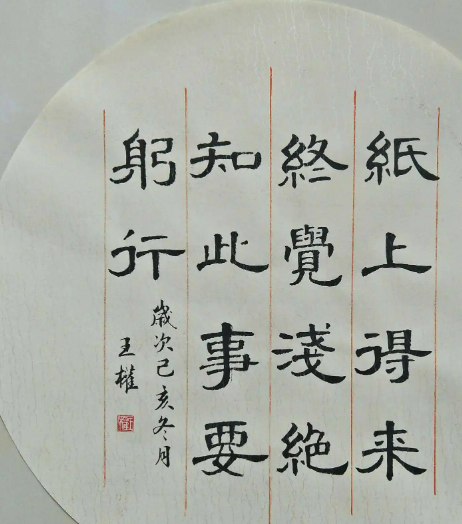 紙上得来
終覺淺絶
知此事要
躬行
歲次己亥冬月
王權